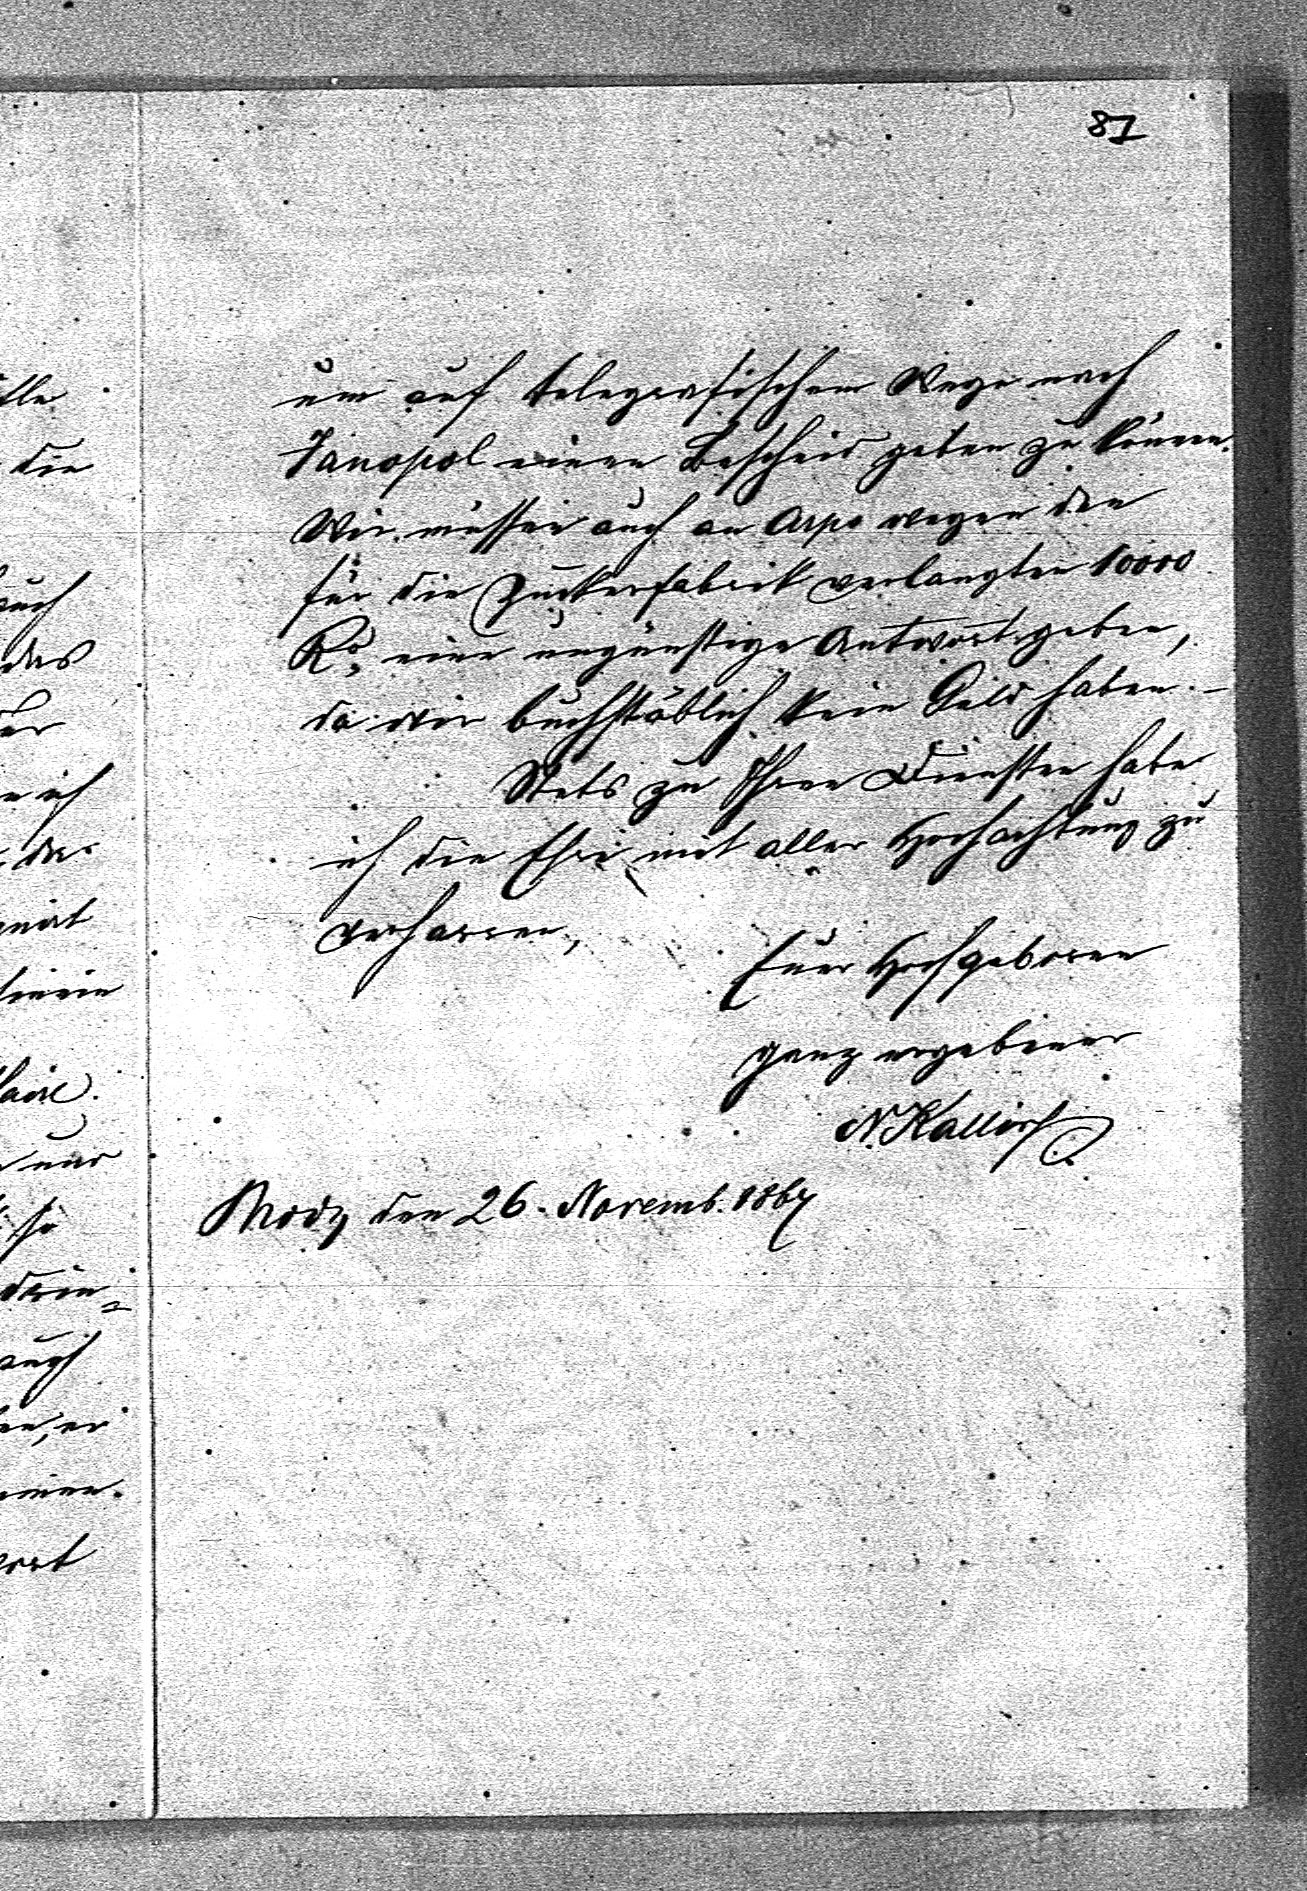 81
um auf telegrafischem Wege nach
Janopol einen Bescheid geben zu können.
Wir müssen auch an Arps wegen den
für die Zuckerfabrik verlangten 10000
Ro. eine ungünstige Antwort geben,
da wir buchstäblich kein Geld haben. –
Stets zu Ihren Diensten habe
ich die Ehre mit aller Hochachtung zu
verharren,
Euer Hochgeboren
ganz ergebener
N. Kallir
Brody den 26. Novemb. 1867
die
auch
das
ich
so
auch